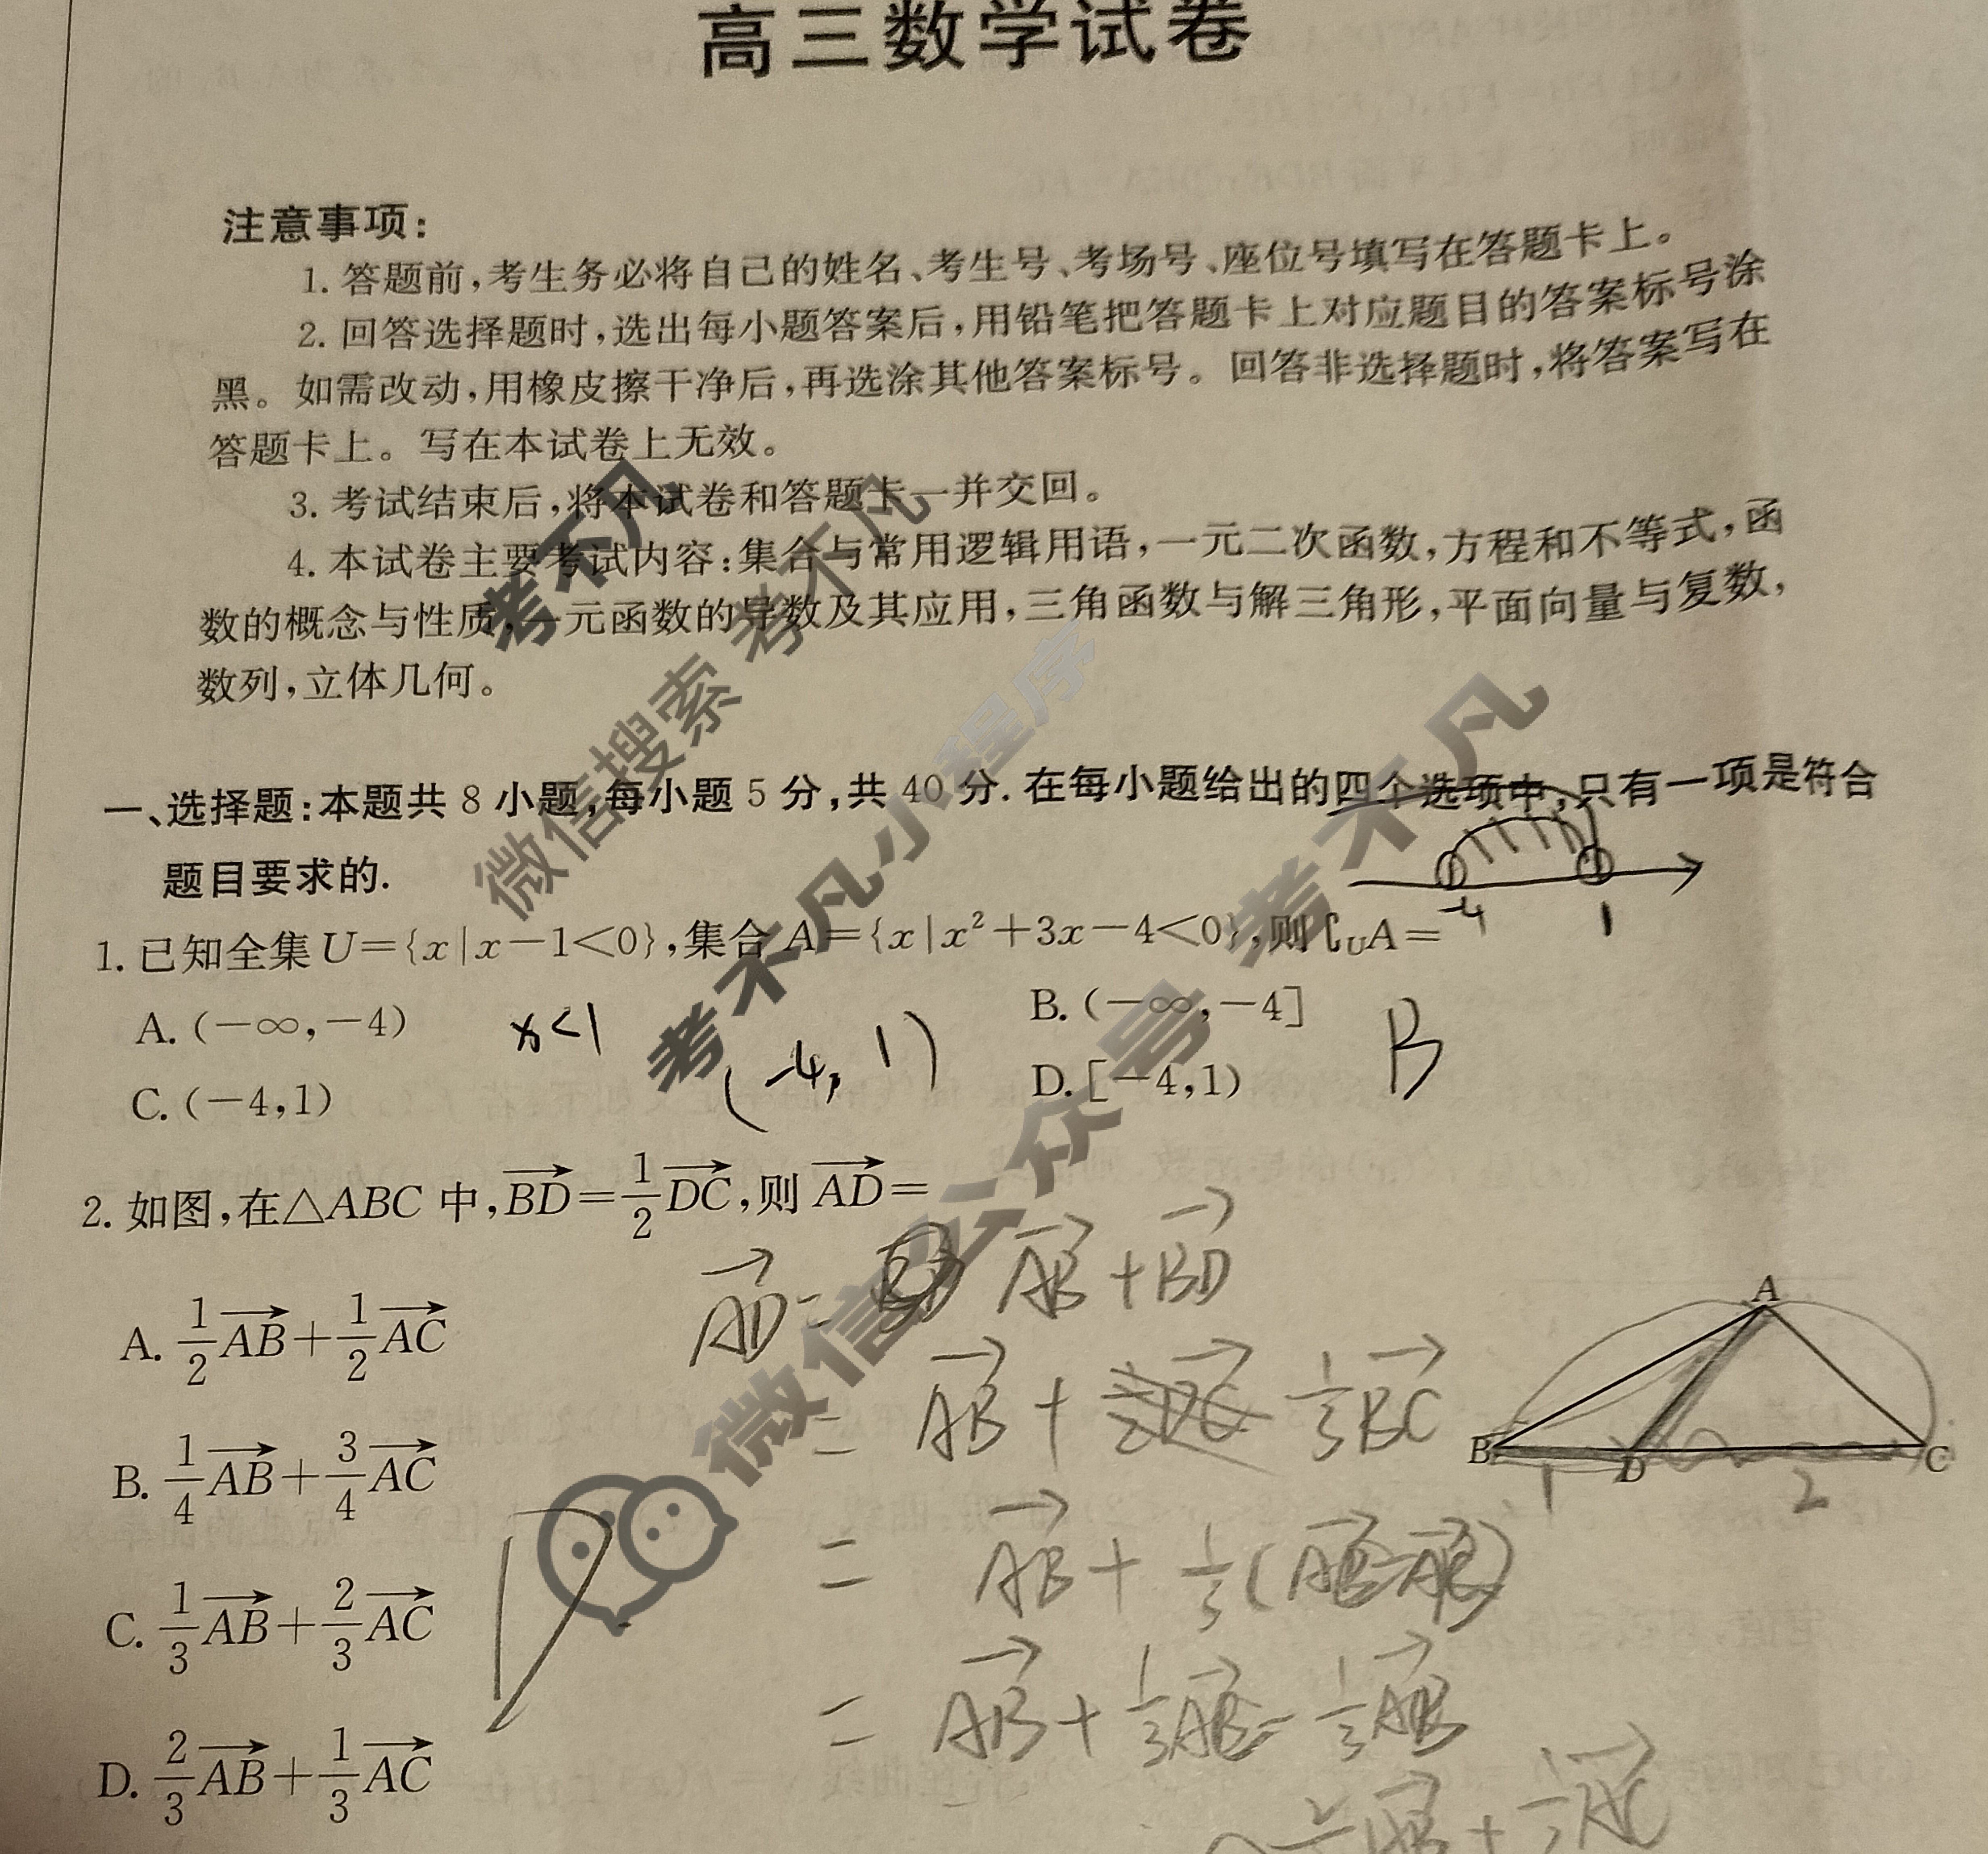 高三数学试卷
注意事项:
1. 答题前,考生务必将自己的姓名、考生号、考场号、座位号填写在答题卡上。
2. 回答选择题时,选出每小题答案后,用铅笔把答题卡上对应题目的答案标号涂
黑。如需改动,用橡皮擦干净后,再选涂其他答案标号。回答非选择题时,将答案写在
答题卡上。写在本试卷上无效。
3. 考试结束后,将本试卷和答题卡一并交回。
4. 本试卷主要考试内容:集合与常用逻辑用语,一元二次函数,方程和不等式,函
数的概念与性质,一元函数的导数及其应用,三角函数与解三角形,平面向量与复数,
数列,立体几何。
考不凡
微信搜索 考不凡
考不凡小程序
微信公众号 考不凡
一、选择题:本题共 8 小题,每小题 5 分,共 40 分. 在每小题给出的四个选项中,只有一项是符合
题目要求的.
-4 1
1. 已知全集 U={x|x-1<0},集合 A={x|x²+3x-4<0},则∁UA=
A. (-∞,-4) B. (-∞,-4]
x<1 (-4, 1) B
C. (-4,1) D. [-4,1)
2. 如图,在△ABC 中,$\overrightarrow{BD}=\frac{1}{2}\overrightarrow{DC}$,则 $\overrightarrow{AD}=$
A. $\frac{1}{2}\overrightarrow{AB}+\frac{1}{2}\overrightarrow{AC}$
B. $\frac{1}{4}\overrightarrow{AB}+\frac{3}{4}\overrightarrow{AC}$
C. $\frac{1}{3}\overrightarrow{AB}+\frac{2}{3}\overrightarrow{AC}$
D. $\frac{2}{3}\overrightarrow{AB}+\frac{1}{3}\overrightarrow{AC}$
D
$\overrightarrow{AD}=\overrightarrow{AB}+\overrightarrow{BD}$
$=\overrightarrow{AB}+\frac{1}{3}\overrightarrow{BC}$
$=\overrightarrow{AB}+\frac{1}{3}($
$=\overrightarrow{AB}+\frac{1}{3}$
A
B D C
1 2